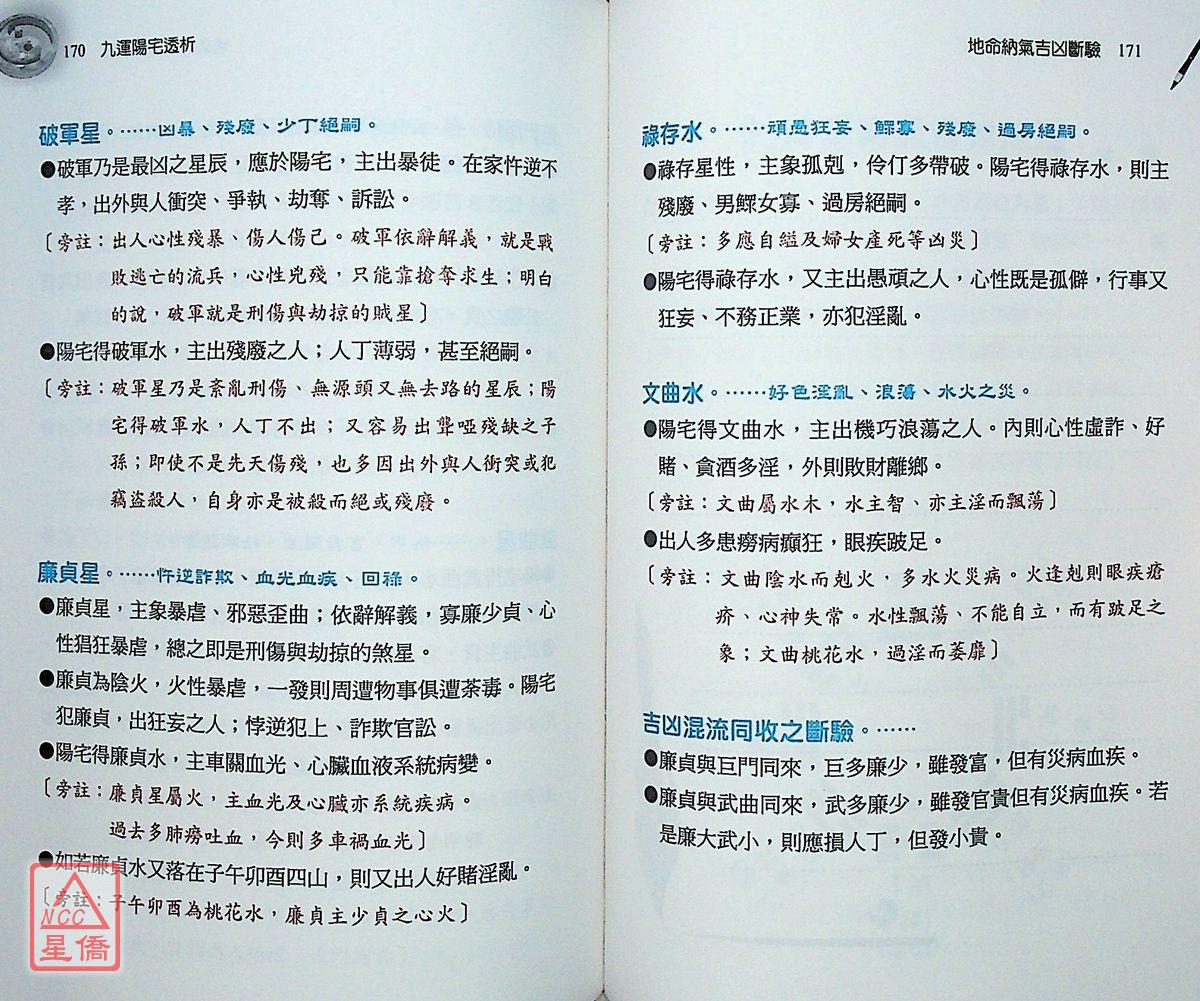 170 九運陽宅透析
破軍星。……凶暴、殘廢、少丁絕嗣。
●破軍乃是最凶之星辰，應於陽宅，主出暴徒。在家忤逆不
孝，出外與人衝突、爭執、劫奪、訴訟。
〔旁註：出人心性殘暴、傷人傷己。破軍依辭解義，就是戰
敗逃亡的流兵，心性兇殘，只能靠搶奪求生；明白
的說，破軍就是刑傷與劫掠的賊星〕
●陽宅得破軍水，主出殘廢之人；人丁薄弱，甚至絕嗣。
〔旁註：破軍星乃是紊亂刑傷、無源頭又無去路的星辰；陽
宅得破軍水，人丁不出；又容易出聾啞殘缺之子
孫；即使不是先天傷殘，也多因出外與人衝突或犯
竊盜殺人，自身亦是被殺而絕或殘廢。
廉貞星。……忤逆詐欺、血光血疾、回祿。
●廉貞星，主象暴虐、邪惡歪曲；依辭解義，寡廉少貞、心
性猖狂暴虐，總之即是刑傷與劫掠的煞星。
●廉貞為陰火，火性暴虐，一發則周遭物事俱遭荼毒。陽宅
犯廉貞，出狂妄之人；悖逆犯上、詐欺官訟。
●陽宅得廉貞水，主車關血光、心臟血液系統病變。
〔旁註：廉貞星屬火，主血光及心臟亦系統疾病。
過去多肺癆吐血，今則多車禍血光〕
●如若廉貞水又落在子午卯酉四山，則又出人好賭淫亂。
〔旁註：子午卯酉為桃花水，廉貞主少貞之心火〕
NCC
星僑
地命納氣吉凶斷驗 171
祿存水。……頑愚狂妄、鰥寡、殘廢、過房絕嗣。
●祿存星性，主象孤剋，伶仃多帶破。陽宅得祿存水，則主
殘廢、男鰥女寡、過房絕嗣。
〔旁註：多應自縊及婦女產死等凶災〕
●陽宅得祿存水，又主出愚頑之人，心性既是孤僻，行事又
狂妄、不務正業，亦犯淫亂。
文曲水。……好色淫亂、浪蕩、水火之災。
●陽宅得文曲水，主出機巧浪蕩之人。內則心性虛詐、好
賭、貪酒多淫，外則敗財離鄉。
〔旁註：文曲屬水木，水主智、亦主淫而飄蕩〕
●出人多患癆病癲狂，眼疾跛足。
〔旁註：文曲陰水而剋火，多水火災病。火逢剋則眼疾瘡
疥、心神失常。水性飄蕩、不能自立，而有跛足之
象；文曲桃花水，過淫而萎靡〕
吉凶混流同收之斷驗。……
●廉貞與巨門同來，巨多廉少，雖發富，但有災病血疾。
●廉貞與武曲同來，武多廉少，雖發官貴但有災病血疾。若
是廉大武小，則應損人丁，但發小貴。